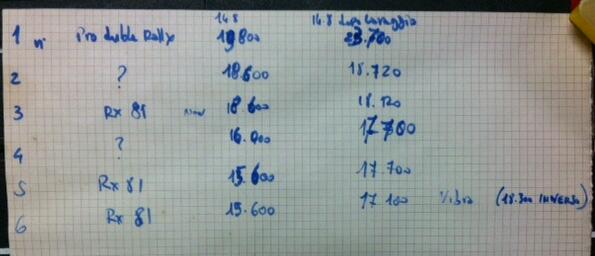 14.8 14.8 dopo lavaggio
1 Pro double Rollx 19800
2 ? 18.600 18.720
3 Rx 81 18.600 18.120
4 ? 16.000 17.700
5 Rx 81 15.600 17.700
6 Rx 81 15.600 17 100 Vibra (18.300 INVERSO)